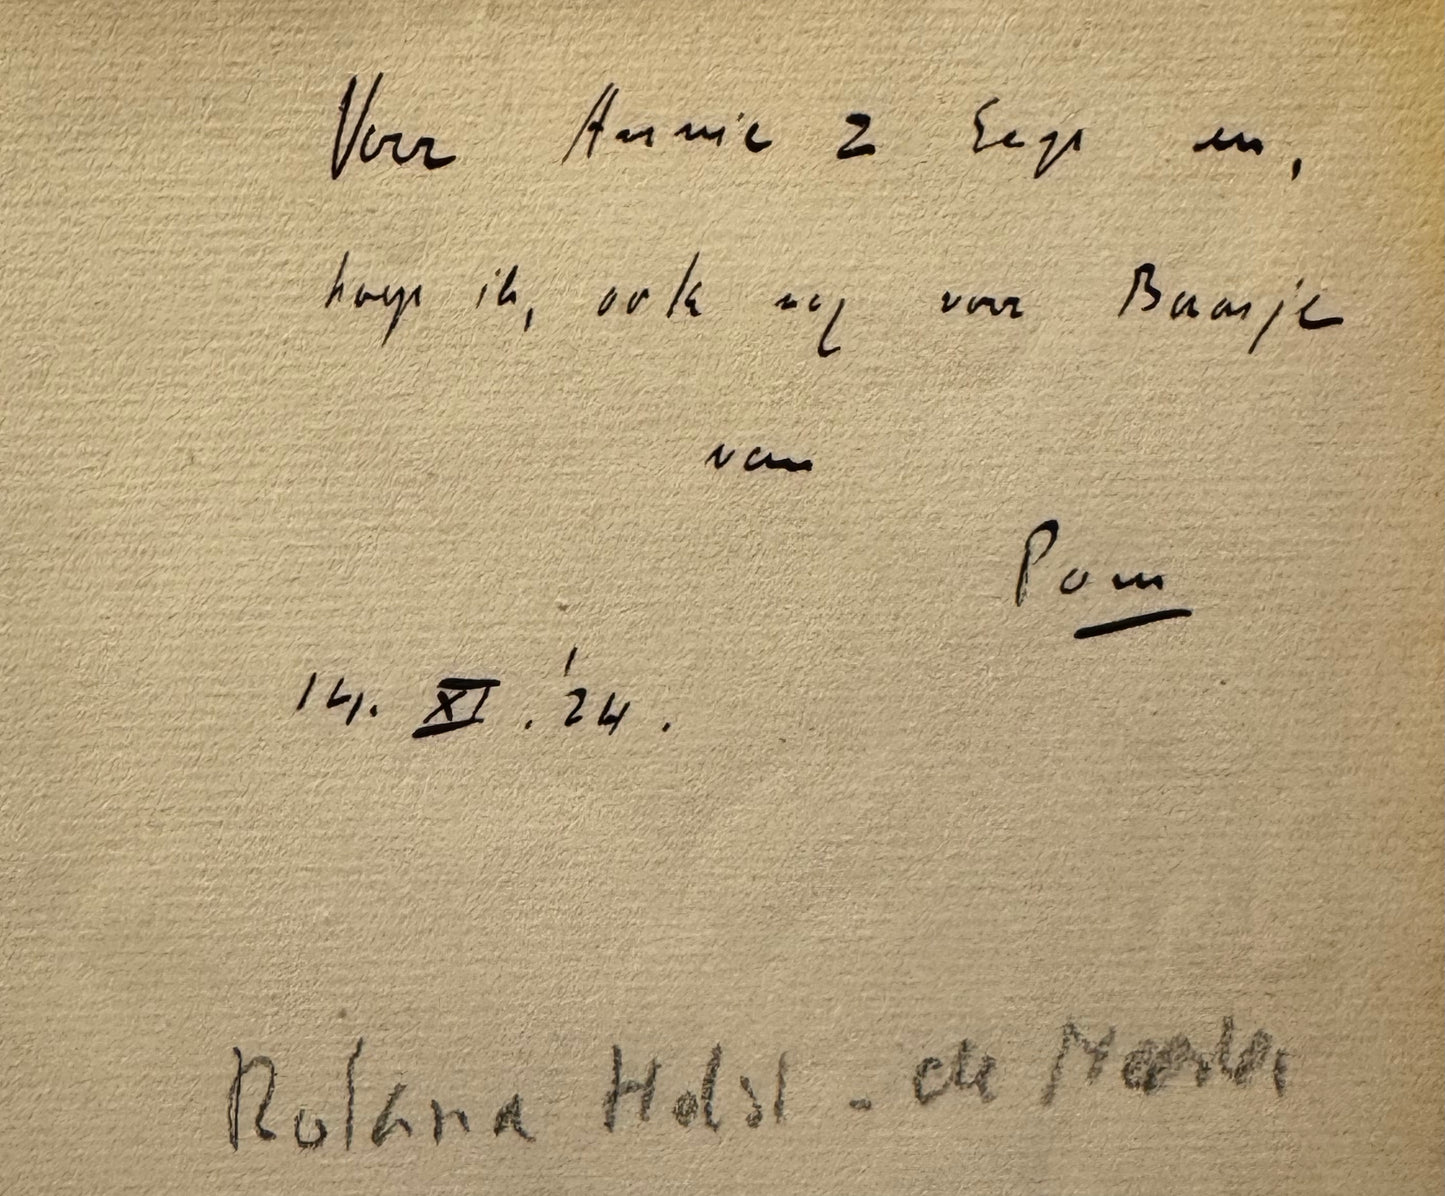 Voor Annie & Eep en,
hoop ik, ook nog voor Baasje
van
Pom
14. XI. '24.
Roland Holst - de Meester